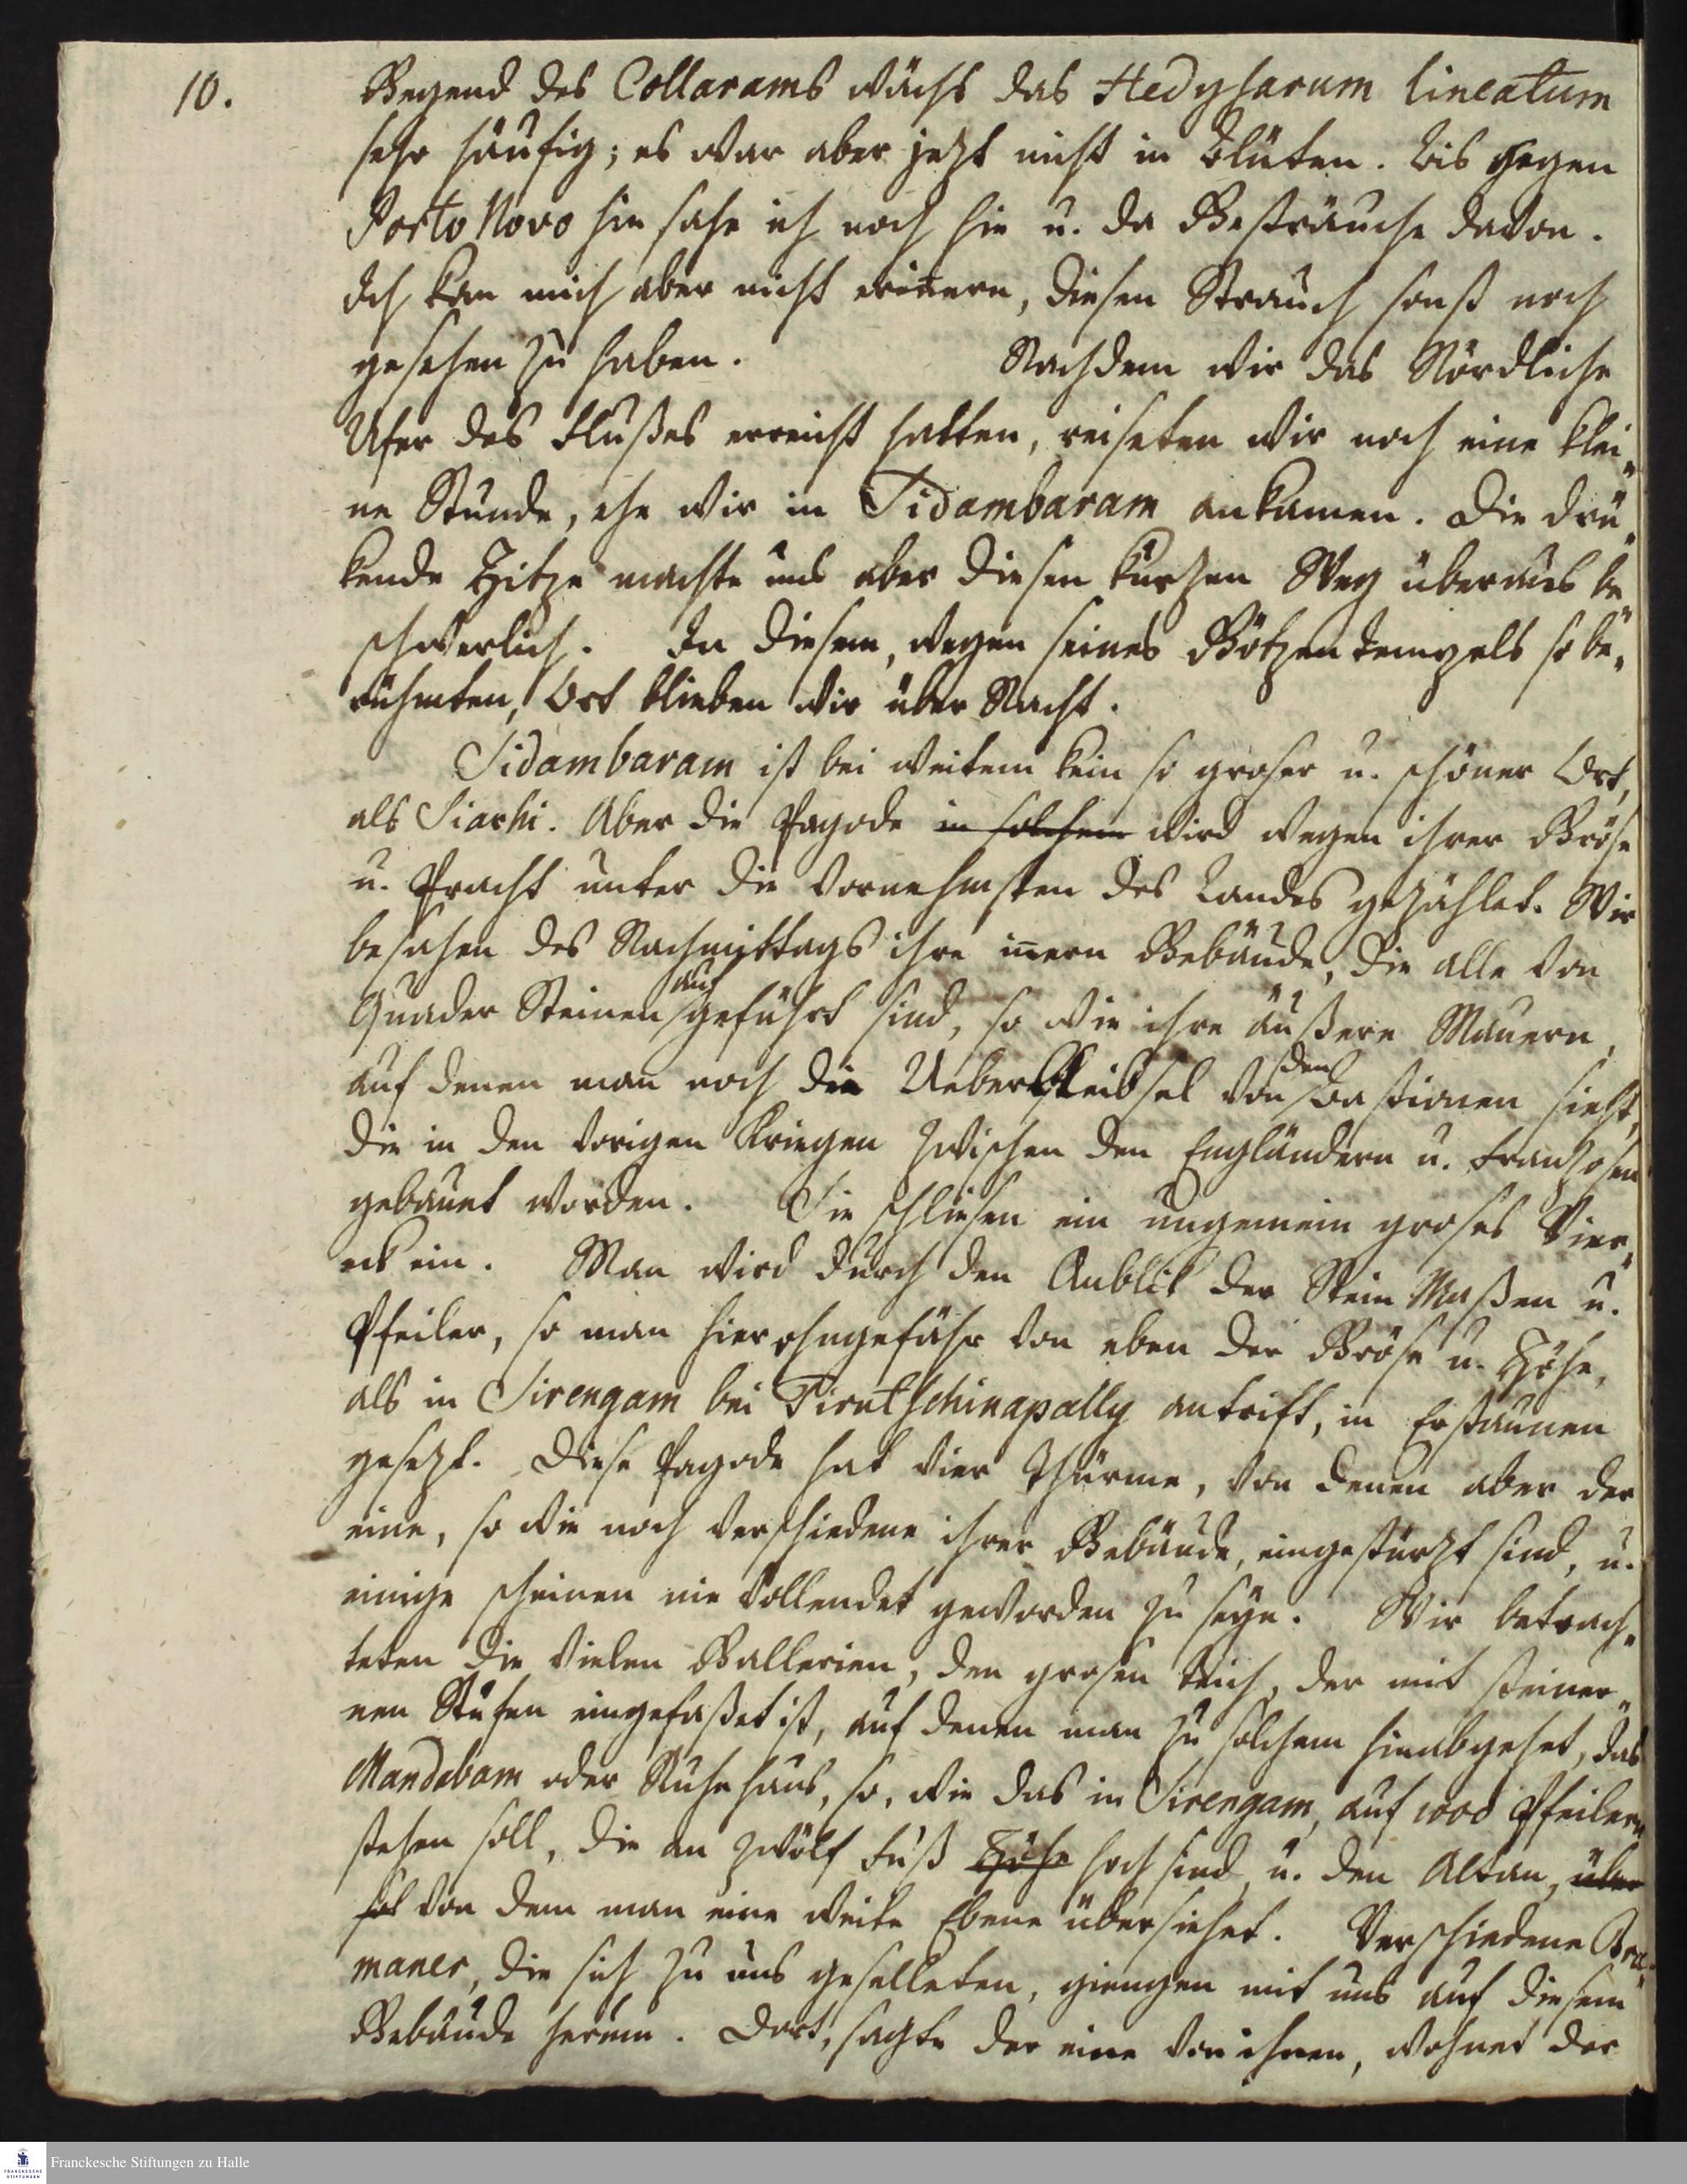 10.
Gegend des Collarams wächs das Hedysarum lineatum
sehr häufig; es war aber jezt nicht in Blüten. Bis gegen
Porto Novo hin sahe ich noch hie u. da Gesträuche davon.
Ich kan mich aber nicht erinern, diesen Strauch sonst noch
gesehen zu haben. Nachdem wir das Nördliche
Ufer des Flußes erreicht hatten, reiseten wir noch eine klei-
ne Stunde, ehe wir in Sidambaram ankamen. Die drü-
kende Hitze machte uns aber diesen kurzen Weg überaus be-
schwerlich. In diesem, wegen seines Götzentempels so be-
rühmten, Ort blieben wir über Nacht.
Sidambaram ist bei weitem kein so groser u. schöner Ort,
als Siarhi. Aber die Pagode in solchem wird wegen ihrer Gröse
u. Pracht unter die vornehmsten des Landes gezählet. Wir
besahen des Nachmittags ihre inern Gebäude, die alle von
Quader Steinen aufgeführt sind, so wie ihre äußere Mauern,
auf denen man noch die Ueberbleibsel von den Bastionen sieht,
die in den vorigen Kriegen zwischen den Engländern u. Franzosen
gebauet worden. Sie schliesen ein ungemein groses Vier-
eck ein. Man wird durch den Anblik der Stein Maßen u.
Pfeiler, so man hier ohngefähr von eben der Gröse u. Höhe,
als in Sirengam bei Tirutschinapally antrift, in Erstaunen
gesezt. Diese Pagode hat vier Thürme, von denen aber der
eine, so wie noch verschiedene ihrer Gebäude, eingestürzt sind, u.
einige scheinen nie vollendet geworden zu seyn. Wir betrach-
teten die vielen Gallerien, den grosen Teich, der mit steiner-
nen Stufen eingefaßet ist, auf denen man zu solchem hinabgehet, das
Mandabam oder Ruhehaus, so, wie das in Sirengam, auf 1000 Pfeilern
stehen soll, die an zwölf Fuß Höhe hoch sind, u. den Altan, über
von dem man eine weite Ebene übersiehet. Verschiedene Bra-
maner, die sich zu uns geselleten, giengen mit uns auf diesem
Gebäude herum. Dort, sagte der eine von ihnen, wohnet der
FRANCKESCHE STIFTUNGEN
Franckesche Stiftungen zu Halle